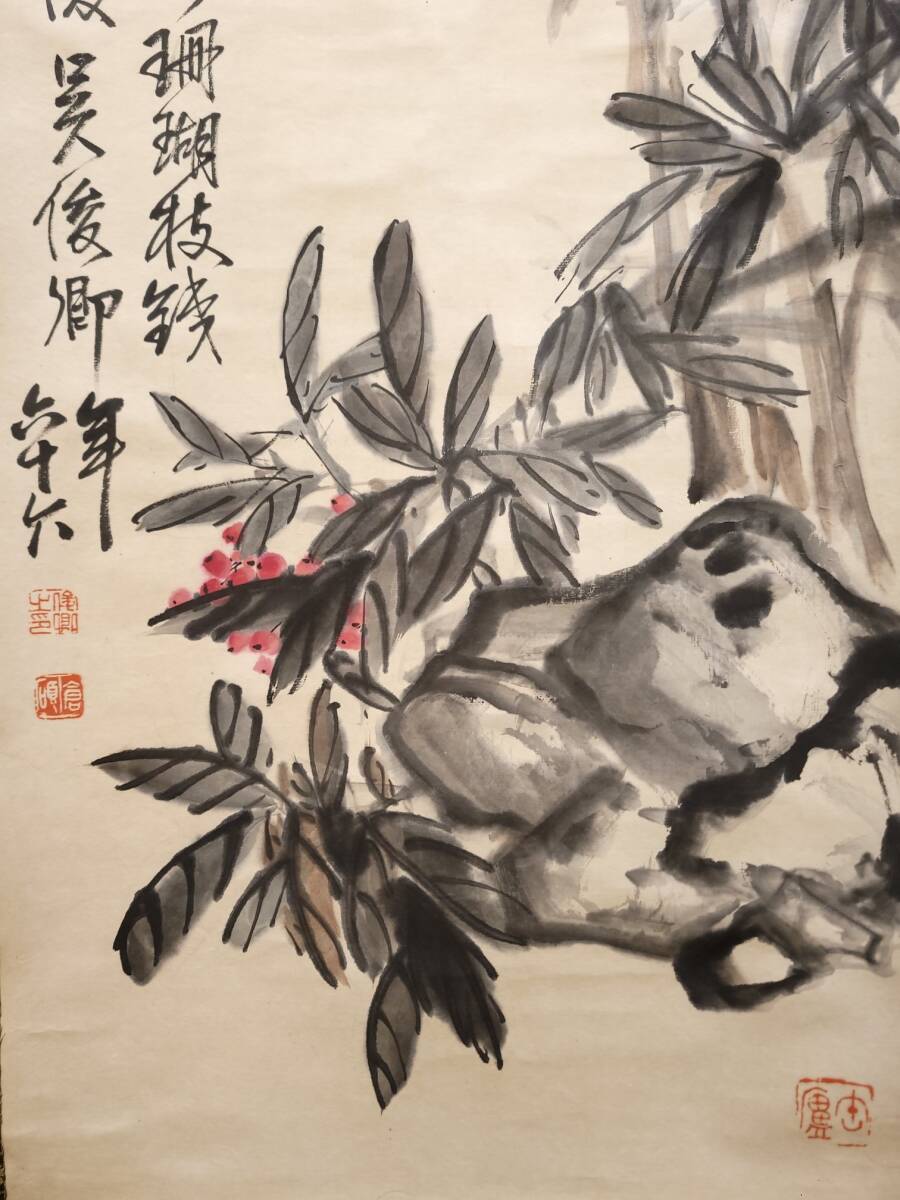 珊瑚枝錢
吳俊卿
年
六十六
俊卿之印
倉碩
缶廬